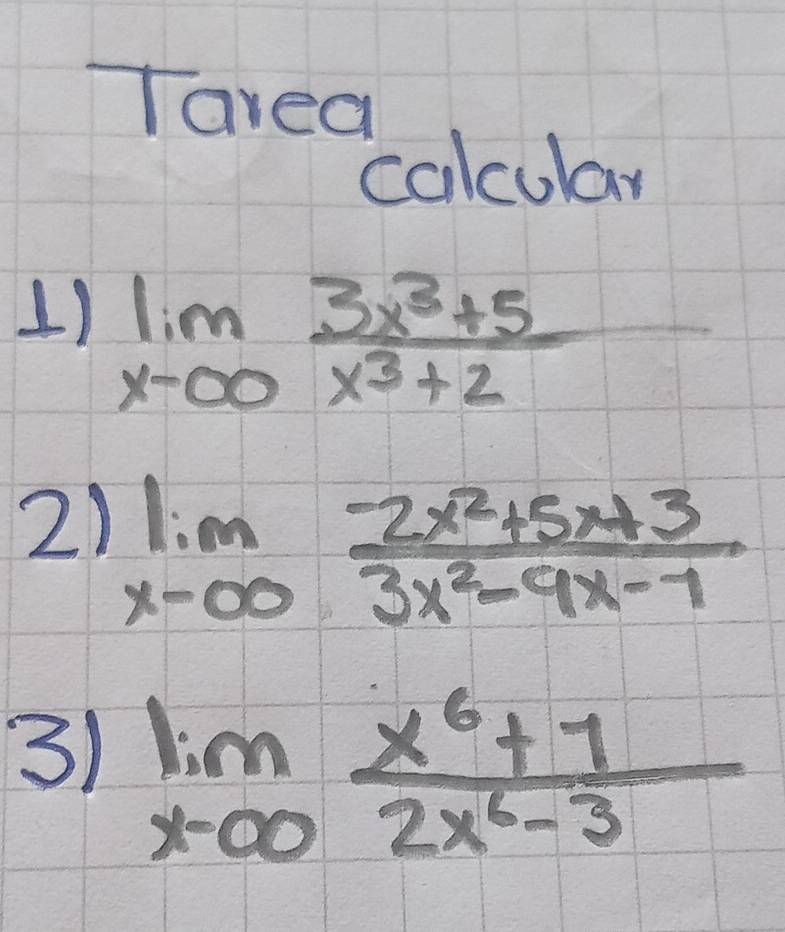 Tarea
calcular
1) lim 3x³+5
x-∞ x³+2
2) lim -2x²+5x+3
x-∞ 3x²-9x-1
3) lim x⁶+1
x-∞ 2x⁶-3